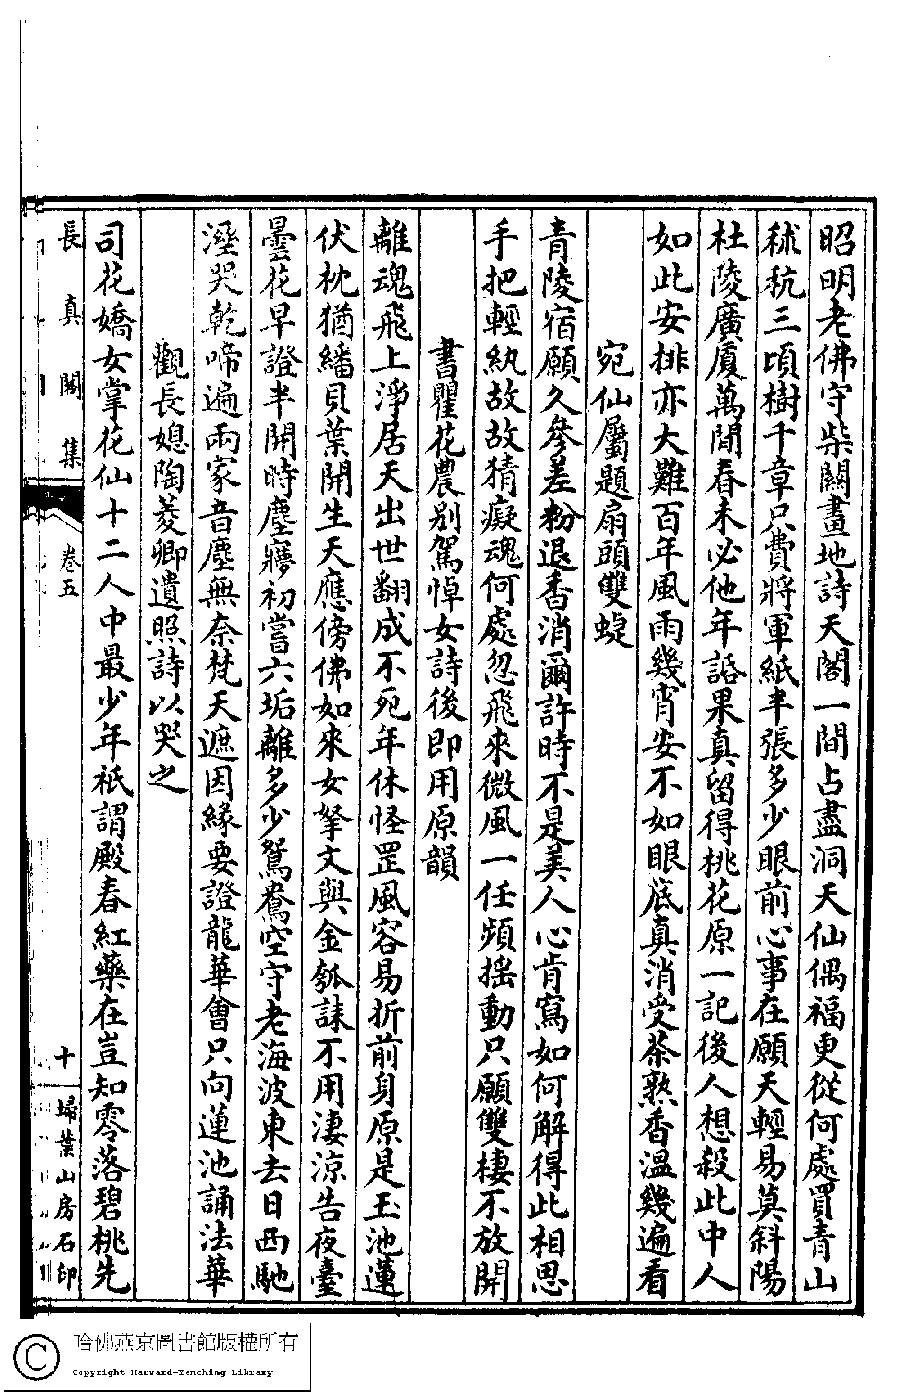 昭明老佛守柴關畫地詩天閣一間占盡洞天仙偶福更從何處買青山
秫秔三頃樹千章只費將軍紙半張多少眼前心事在願天輕易莫斜陽
杜陵廣厦萬間春未必他年語果真留得桃花原一記後人想殺此中人
如此安排亦大難百年風雨幾宵安不如眼底真消受茶熟香溫幾遍看
宛仙屬題扇頭雙蜨
青陵宿願久參差粉退香消爾許時不是美人心肯寫如何解得此相思
手把輕紈故故猜癡魂何處忽飛來微風一任頻搖動只願雙棲不放開
書瞿花農别駕悼女詩後即用原韻
離魂飛上淨居天出世翻成不死年休怪罡風容易折前身原是玉池蓮
伏枕猶繙貝葉開生天應傍佛如來女拏文與金瓠誄不用淒涼告夜臺
曇花早證半開時塵夢初嘗六垢離多少鴛鴦空守老海波東去日西馳
溼哭乾啼遍兩家音塵無奈梵天遮因緣要證龍華會只向蓮池誦法華
觀長媳陶菱卿遺照詩以哭之
司花嬌女掌花仙十二人中最少年祇謂殿春紅藥在豈知零落碧桃先
長真閣集
卷五
十
埽葉山房石印
哈佛燕京圖書館版權所有
Copyright Harvard-Yenching Library